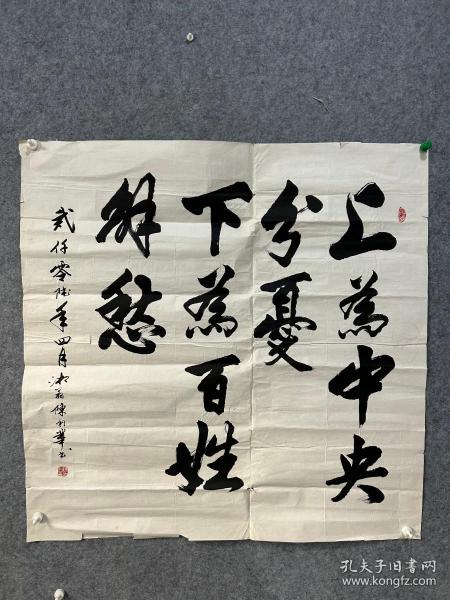 上為中央
分憂
下為百姓
解愁
弍仟零陆年四月
陳利華书
孔夫子旧书网
www.kongfz.com